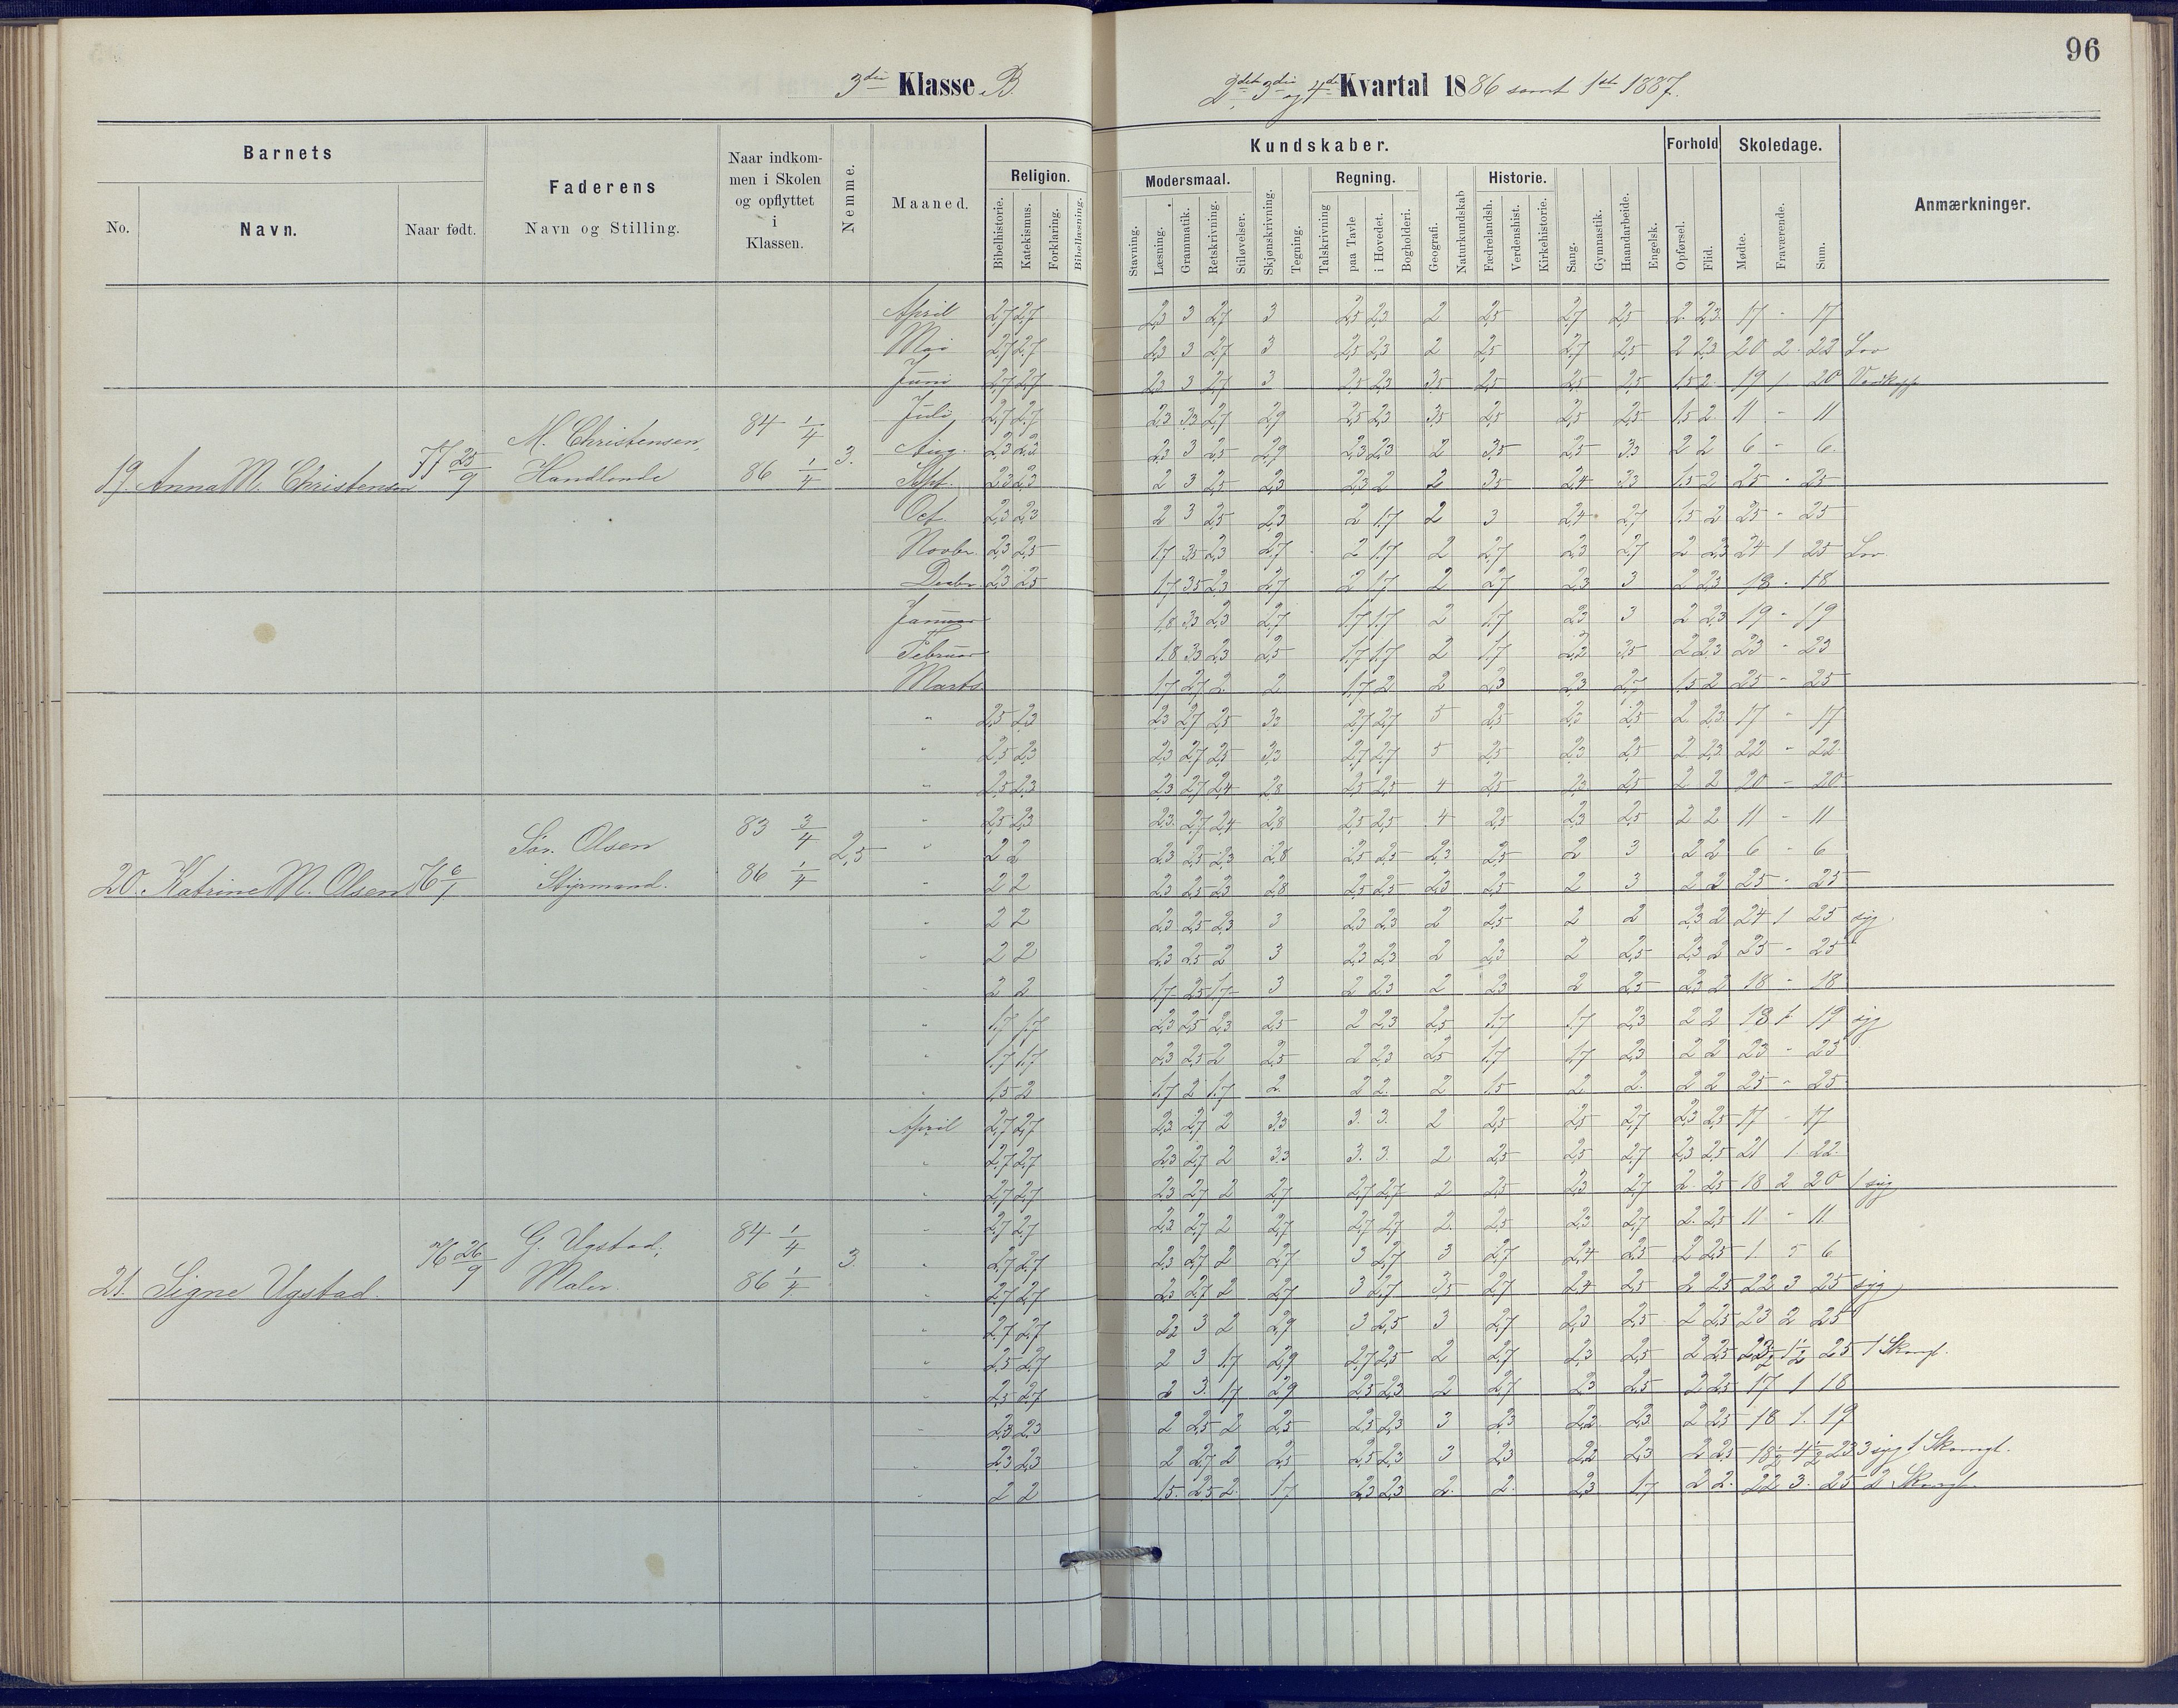 96
3die Klasse B.
2det 3die og 4de Kvartal 1886 samt 1ste 1887.
Barnets
No. Navn. Naar født.
Faderens
Navn og Stilling.
Naar indkommen i Skolen og opflyttet i Klassen.
Nemme.
Maaned.
Kundskaber.
Religion.
Bibelhistorie. Katekismus. Forklaring. Bibellæsning.
Modersmaal.
Stavning. Læsning. Grammatik. Retskrivning. Stiløvelser.
Skjønskrivning. Tegning.
Regning.
Talskrivning paa Tavle i Hovedet. Bogholderi.
Geografi. Naturkundskab
Historie.
Fædrelandsh. Verdenshist. Kirkehistorie.
Sang. Gymnastik. Haandarbeide. Engelsk.
Forhold
Opførsel. Flid.
Skoledage.
Mødte. Fraværende. Sum.
Anmærkninger.
19. Anna M. Christensen 77 25/9 M. Christensen, Handlende 84 1/4 86 1/4 3.
April 2,7 2,7 2,3 3 2,7 3 2,5 2,3 2 2,5 2,7 2,5 2 2,3 17 - 17
Mai 2,7 2,7 2,3 3 2,7 3 2,5 2,3 2 2,5 2,7 2,5 2 2,3 20 2 22 Lov
Juni 2,7 2,7 2,3 3 2,7 3 2,5 2,3 3,5 2,5 2,5 2,5 1,5 2 19 1 20
Juli 2,7 2,7 2,3 3,3 2,7 2,9 2,5 2,3 3,5 2,5 2,5 2,5 1,5 2 11 - 11
Aug. 2,3 2,3 2,3 3 2,5 2,9 2,3 2,3 2 3,5 2,5 3,3 2 2 6 - 6
Sept. 2,3 2,3 2 3 2,5 2,3 2,3 2 2 3,5 2,4 3,3 1,5 2 25 - 25
Oct. 2,3 2,3 2 3 2,5 2,3 2 1,7 2 3 2,4 2,7 1,5 2 25 - 25
Novbr. 2,3 2,5 1,7 3,5 2,3 2,7 2 1,7 2 2,7 2,3 2,7 2 2,3 24 1 25 Lov
Decbr. 2,3 2,5 1,7 3,5 2,3 2,7 2 1,7 2 2,7 2,3 3 2 2,3 18 - 18
Januar 1,8 3,3 2,3 2,7 1,7 1,7 2 1,7 2,3 3 2 2,3 19 - 19
Februar 1,8 3,3 2,3 2,5 1,7 1,7 2 1,7 2,2 3,5 2 2,3 23 - 23
Marts 1,7 2,7 2 2 1,7 2 2 2,3 2,3 2,7 1,5 2 25 - 25
20. Katrine M. Olsen 76 6/1 Sør. Olsen Styrmand. 83 3/4 86 1/4 2,5
" 2,5 2,3 2,3 2,7 2,5 3,3 2,7 2,7 5 2,5 2,3 2,5 2 2,3 17 - 17
" 2,5 2,3 2,3 2,7 2,5 3,3 2,7 2,7 5 2,5 2,3 2,5 2 2,3 22 - 22
" 2,5 2,3 2,3 2,7 2,4 2,8 2,5 2,5 4 2,5 2,3 2,5 2 2 20 - 20
" 2,5 2,3 2,3 2,7 2,4 2,8 2,5 2,5 4 2,5 2,3 2,5 2 2 11 - 11
" 2 2 2,3 2,5 2,3 2,8 2,5 2,5 2,3 2,5 2 3 2 2 6 - 6
" 2 2 2,3 2,5 2,3 2,8 2,5 2,5 2,3 2,5 2 3 2 2 25 - 25
" 2 2 2,3 2,5 2,3 3 2,3 2,3 2 2,5 2 2 2,3 2 24 1 25 syg.
" 2 2 2,3 2,5 2 3 2,3 2,3 2 2,3 2 2,5 2,3 2 25 - 25
" 2 2 1,7 2,5 1,7 3 2 2,3 2 2,3 2 2,5 2,3 2 18 - 18
" 1,7 1,7 2,3 2,5 2,3 2,5 2 2,3 2,5 1,7 1,7 2,3 2 2 18 1 19 syg
" 1,7 1,7 2,3 2,5 2 2,5 2 2,3 2,5 1,7 1,7 2,3 2 2 23 - 23
" 1,5 2 1,7 2 1,7 2 2 2 2 1,5 2 2 2 2 25 - 25
21. Signe Ugstad. 76 26/9 G. Ugstad, Maler. 84 1/4 86 1/4 3.
April 2,7 2,7 2,3 2,7 2 3,3 3. 3. 2 2,5 2,5 2,7 2,3 2,5 17 - 17
" 2,7 2,7 2,3 2,7 2 3,3 3. 3. 2 2,5 2,5 2,7 2,3 2,5 21 1 22
" 2,7 2,7 2,3 2,7 2 2,7 2,7 2,7 2 2,5 2,3 2,7 2 2,5 18 2 20 1 syg
" 2,7 2,7 2,3 2,7 2 2,7 2,7 2,7 2 2,5 2,3 2,7 2 2,5 11 - 11
" 2,7 2,7 2,3 2,7 2 2,7 3 2,7 3 2,7 2,4 2,5 2 2,5 1 5 6
" 2,7 2,7 2,3 2,7 2 2,7 3 2,7 3,5 2,7 2,4 2,5 2 2,5 22 3 25 syg
" 2,7 2,7 2,2 3 2 2,9 3 2,5 3 2,7 2,3 2,5 2 2,5 23 2 25
" 2,5 2,7 2 3 1,7 2,9 2,7 2,5 2 2,7 2,3 2,5 2 2,5 23 1/2 1 1/2 25 1 Skomgl.
" 2,5 2,7 2 3 1,7 2,9 2,5 2,3 2 2,7 2,3 2,5 2 2,5 17 1 18
" 2,3 2,3 2 2,5 2 2,5 2,5 2,3 3 2,3 2,2 2,3 2 2,5 18 1 19
" 2,3 2,3 2 2,7 2 2,5 2,5 2,3 3 2,3 2,2 2,3 2 2,5 18 1/2 4 1/2 23 3 syg 1 Skomgl.
" 2 2 1,5 2,5 2 1,7 2,3 2,3 2 2 2,3 1,7 2 2 22 3 25 2 Skomgl.